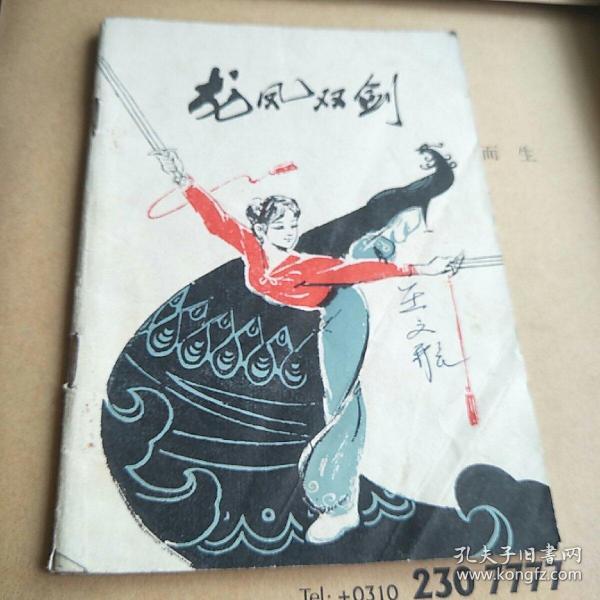 龙凤双剑
而生
王文
Tel: +0310 230 7777
孔夫子旧书网
www.kongfz.com